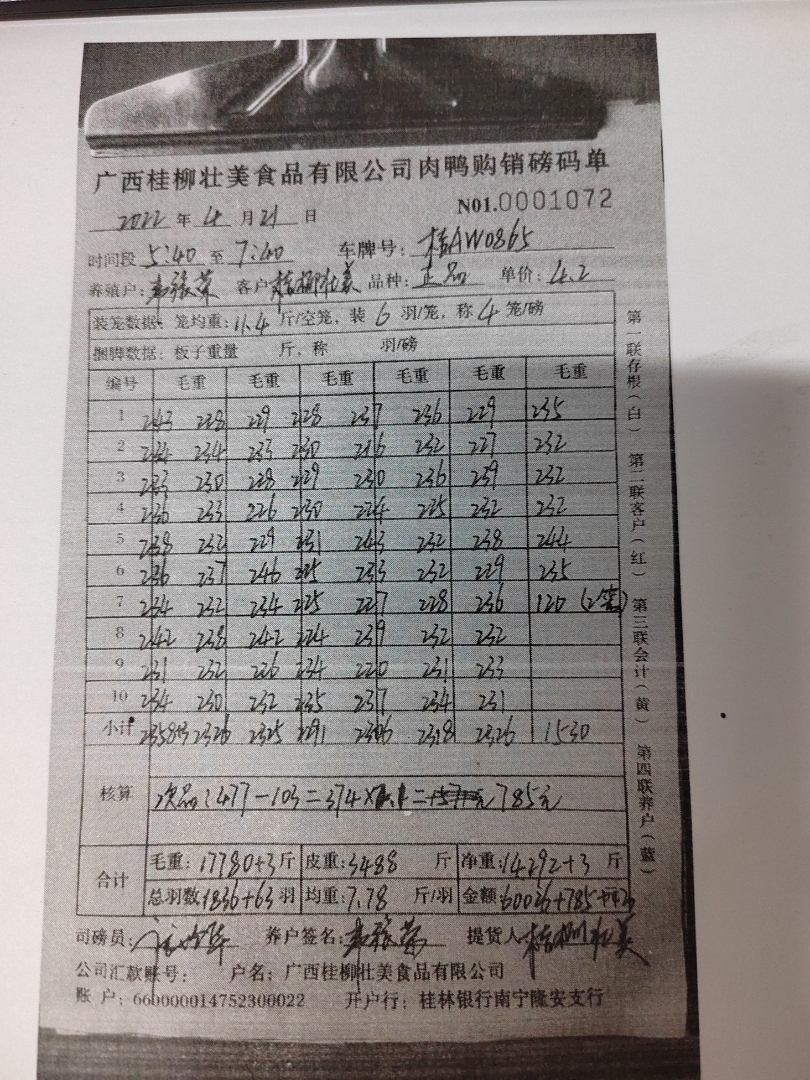 广西桂柳壮美食品有限公司肉鸭购销磅码单
2022 年 4 月 21 日 N01.0001072
时间段 5:40 至 7:40 车牌号: 桂AW0865
养殖户: 客户 桂柳壮美 品种: 正品 单价: 4.2
装笼数据: 笼均重: 11.4 斤/空笼, 装 6 羽/笼, 称 4 笼/磅
捆脚数据: 板子重量 斤, 称 羽/磅
编号 毛重 毛重 毛重 毛重 毛重 毛重
1 243 228 229 228 237 236 229 235
2 234 234 233 230 232 227 232
3 233 230 228 229 230 236 239 232
4 236 233 226 230 224 225 232 232
5 238 232 229 231 243 232 238 244
6 236 237 246 225 233 232 229 235
7 234 232 234 225 227 228 236 120 (2笼)
8 242 238 242 224 239 232 232
9 231 232 226 234 220 231 233
10 234 230 232 235 237 234 231
小计 2326 2325 2291 2306 2318 2326 1530
核算 次品: 477-103=374× = 785元
合计 毛重: 17780+3 斤 皮重: 3488 斤 净重: 14292+3 斤
总羽数 1836+63 羽 均重: 7.78 斤/羽 金额: 60026+785
司磅员: 养户签名: 提货人: 桂柳壮美
公司汇款账号: 户名: 广西桂柳壮美食品有限公司
账 户: 660000014752300022 开户行: 桂林银行南宁隆安支行
第一联存根(白) 第二联客户(红) 第三联会计(黄) 第四联养户(蓝)